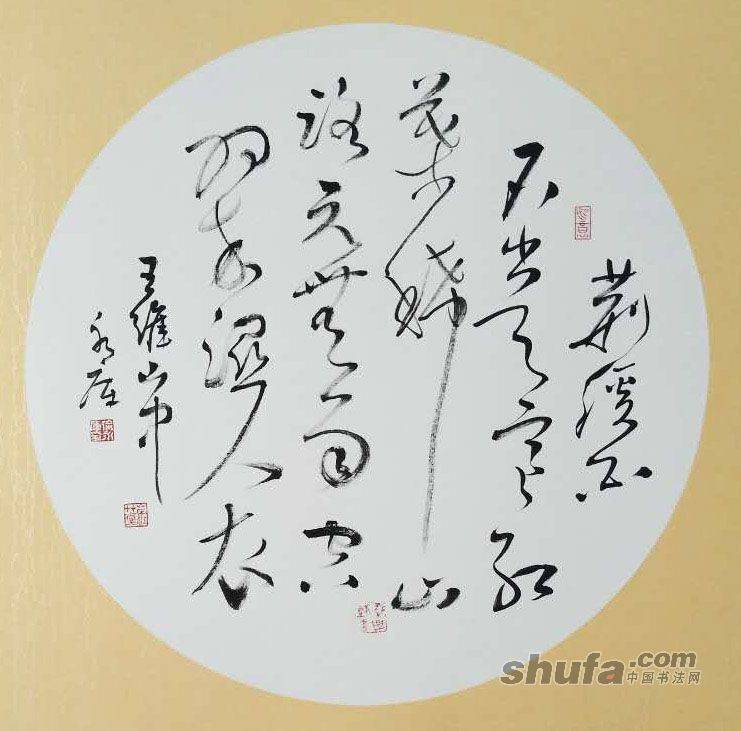 荆溪白
石出天寒紅
葉稀山
路元無雨空
翠濕人衣
王維山中
shufa.com
中国书法网